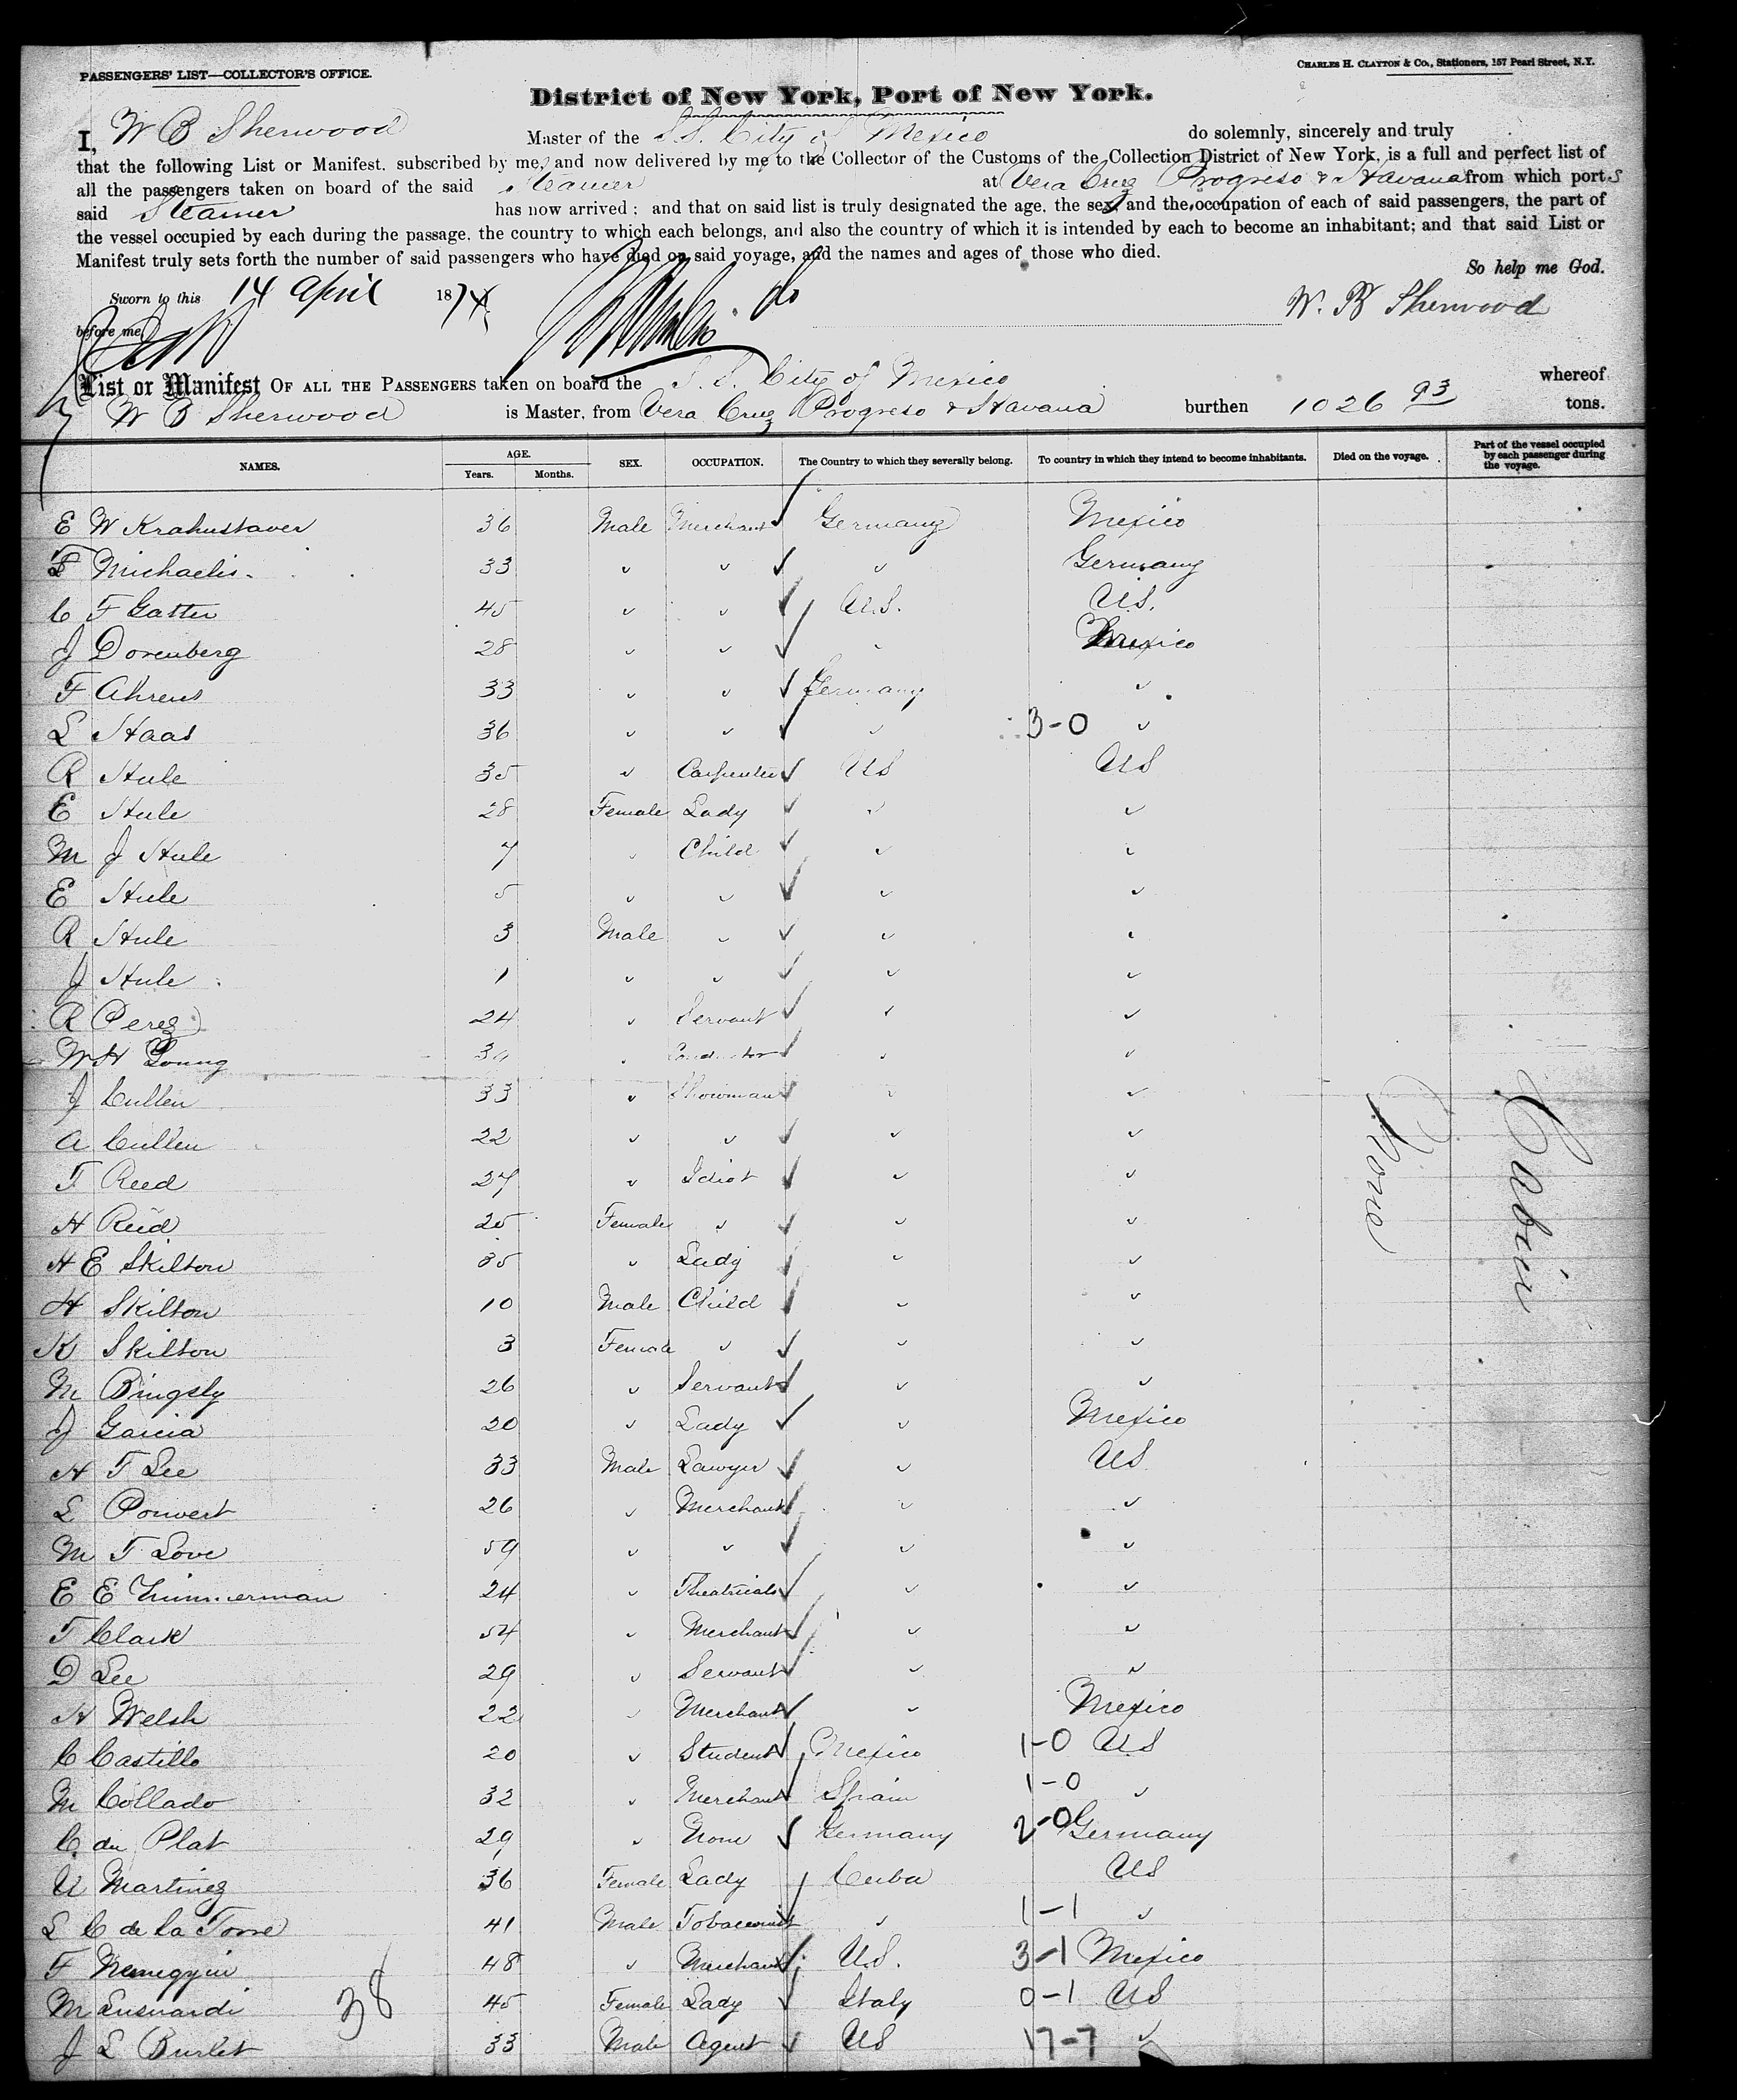 PASSENGERS' LIST—COLLECTOR'S OFFICE.
CHARLES H. CLAYTON & Co., Stationers, 157 Pearl Street, N.Y.
District of New York, Port of New York.
I, W B Sherwood Master of the S.S. City of Mexico do solemnly, sincerely and truly
that the following List or Manifest, subscribed by me, and now delivered by me to the Collector of the Customs of the Collection District of New York, is a full and perfect list of
all the passengers taken on board of the said Steamer at Vera Cruz Progreso & Havana from which ports
said Steamer has now arrived; and that on said list is truly designated the age, the sex, and the occupation of each of said passengers, the part of
the vessel occupied by each during the passage, the country to which each belongs, and also the country of which it is intended by each to become an inhabitant; and that said List or
Manifest truly sets forth the number of said passengers who have died on said voyage, and the names and ages of those who died.
So help me God.
Sworn to this 14 April 1874
before me
W. B Sherwood
List or Manifest OF ALL THE PASSENGERS taken on board the S. S. City of Mexico whereof
W B Sherwood is Master, from Vera Cruz Progreso & Havana burthen 1026 93 tons.
NAMES. AGE. Years. Months. SEX. OCCUPATION. The Country to which they severally belong. To country in which they intend to become inhabitants. Died on the voyage. Part of the vessel occupied by each passenger during the voyage.
E W Krahnstaver 36 Male Merchant Germany Mexico
Michaelis 33 " " " Germany
C F Gatter 45 " " U.S. U.S.
J Dorenberg 28 " " " Mexico
F Ahrens 33 " " Germany "
L Haas 36 " " " 3-0 "
R Hule 35 " Carpenter US US
E Hule 28 Female Lady " "
M J Hule 7 " Child " "
E Hule 5 " " " "
R Hule 3 Male " " "
J Hule 1 " " " "
R Perez 24 " Servant " "
W H Young " Conductor " "
J Cullen 33 " Showman " "
A Cullen 22 " " " "
F Reed 27 " Idiot " "
H Reid 25 Female " " "
H E Skilton 35 " Lady " "
H Skilton 10 Male Child " "
K Skilton 3 Female " " "
M Bingsly 26 " Servant " "
J Garcia 20 " Lady " Mexico
H T Lee 33 Male Lawyer " US
L Ponvert 26 " Merchant " "
M T Love 59 " " " "
E E Zimmerman 24 " Theatricals " "
T Clark 54 " Merchant " "
D Lee 29 " Servant " "
H Welsh 22 " Merchant " Mexico
C Castillo 20 " Student Mexico 1-0 US
M Collado 32 " Merchant Spain 1-0 "
C du Plat 29 " None Germany 2-0 Germany
U Martinez 36 Female Lady Cuba US
L C de la Torre 41 Male Tobacconist " 1-1 "
F 48 " Merchant U.S. 3-1 Mexico
M Lusnardi 45 Female Lady Italy 0-1 US
J L Burlet 33 Male Agent US 17-7 "
38
None
Cabin